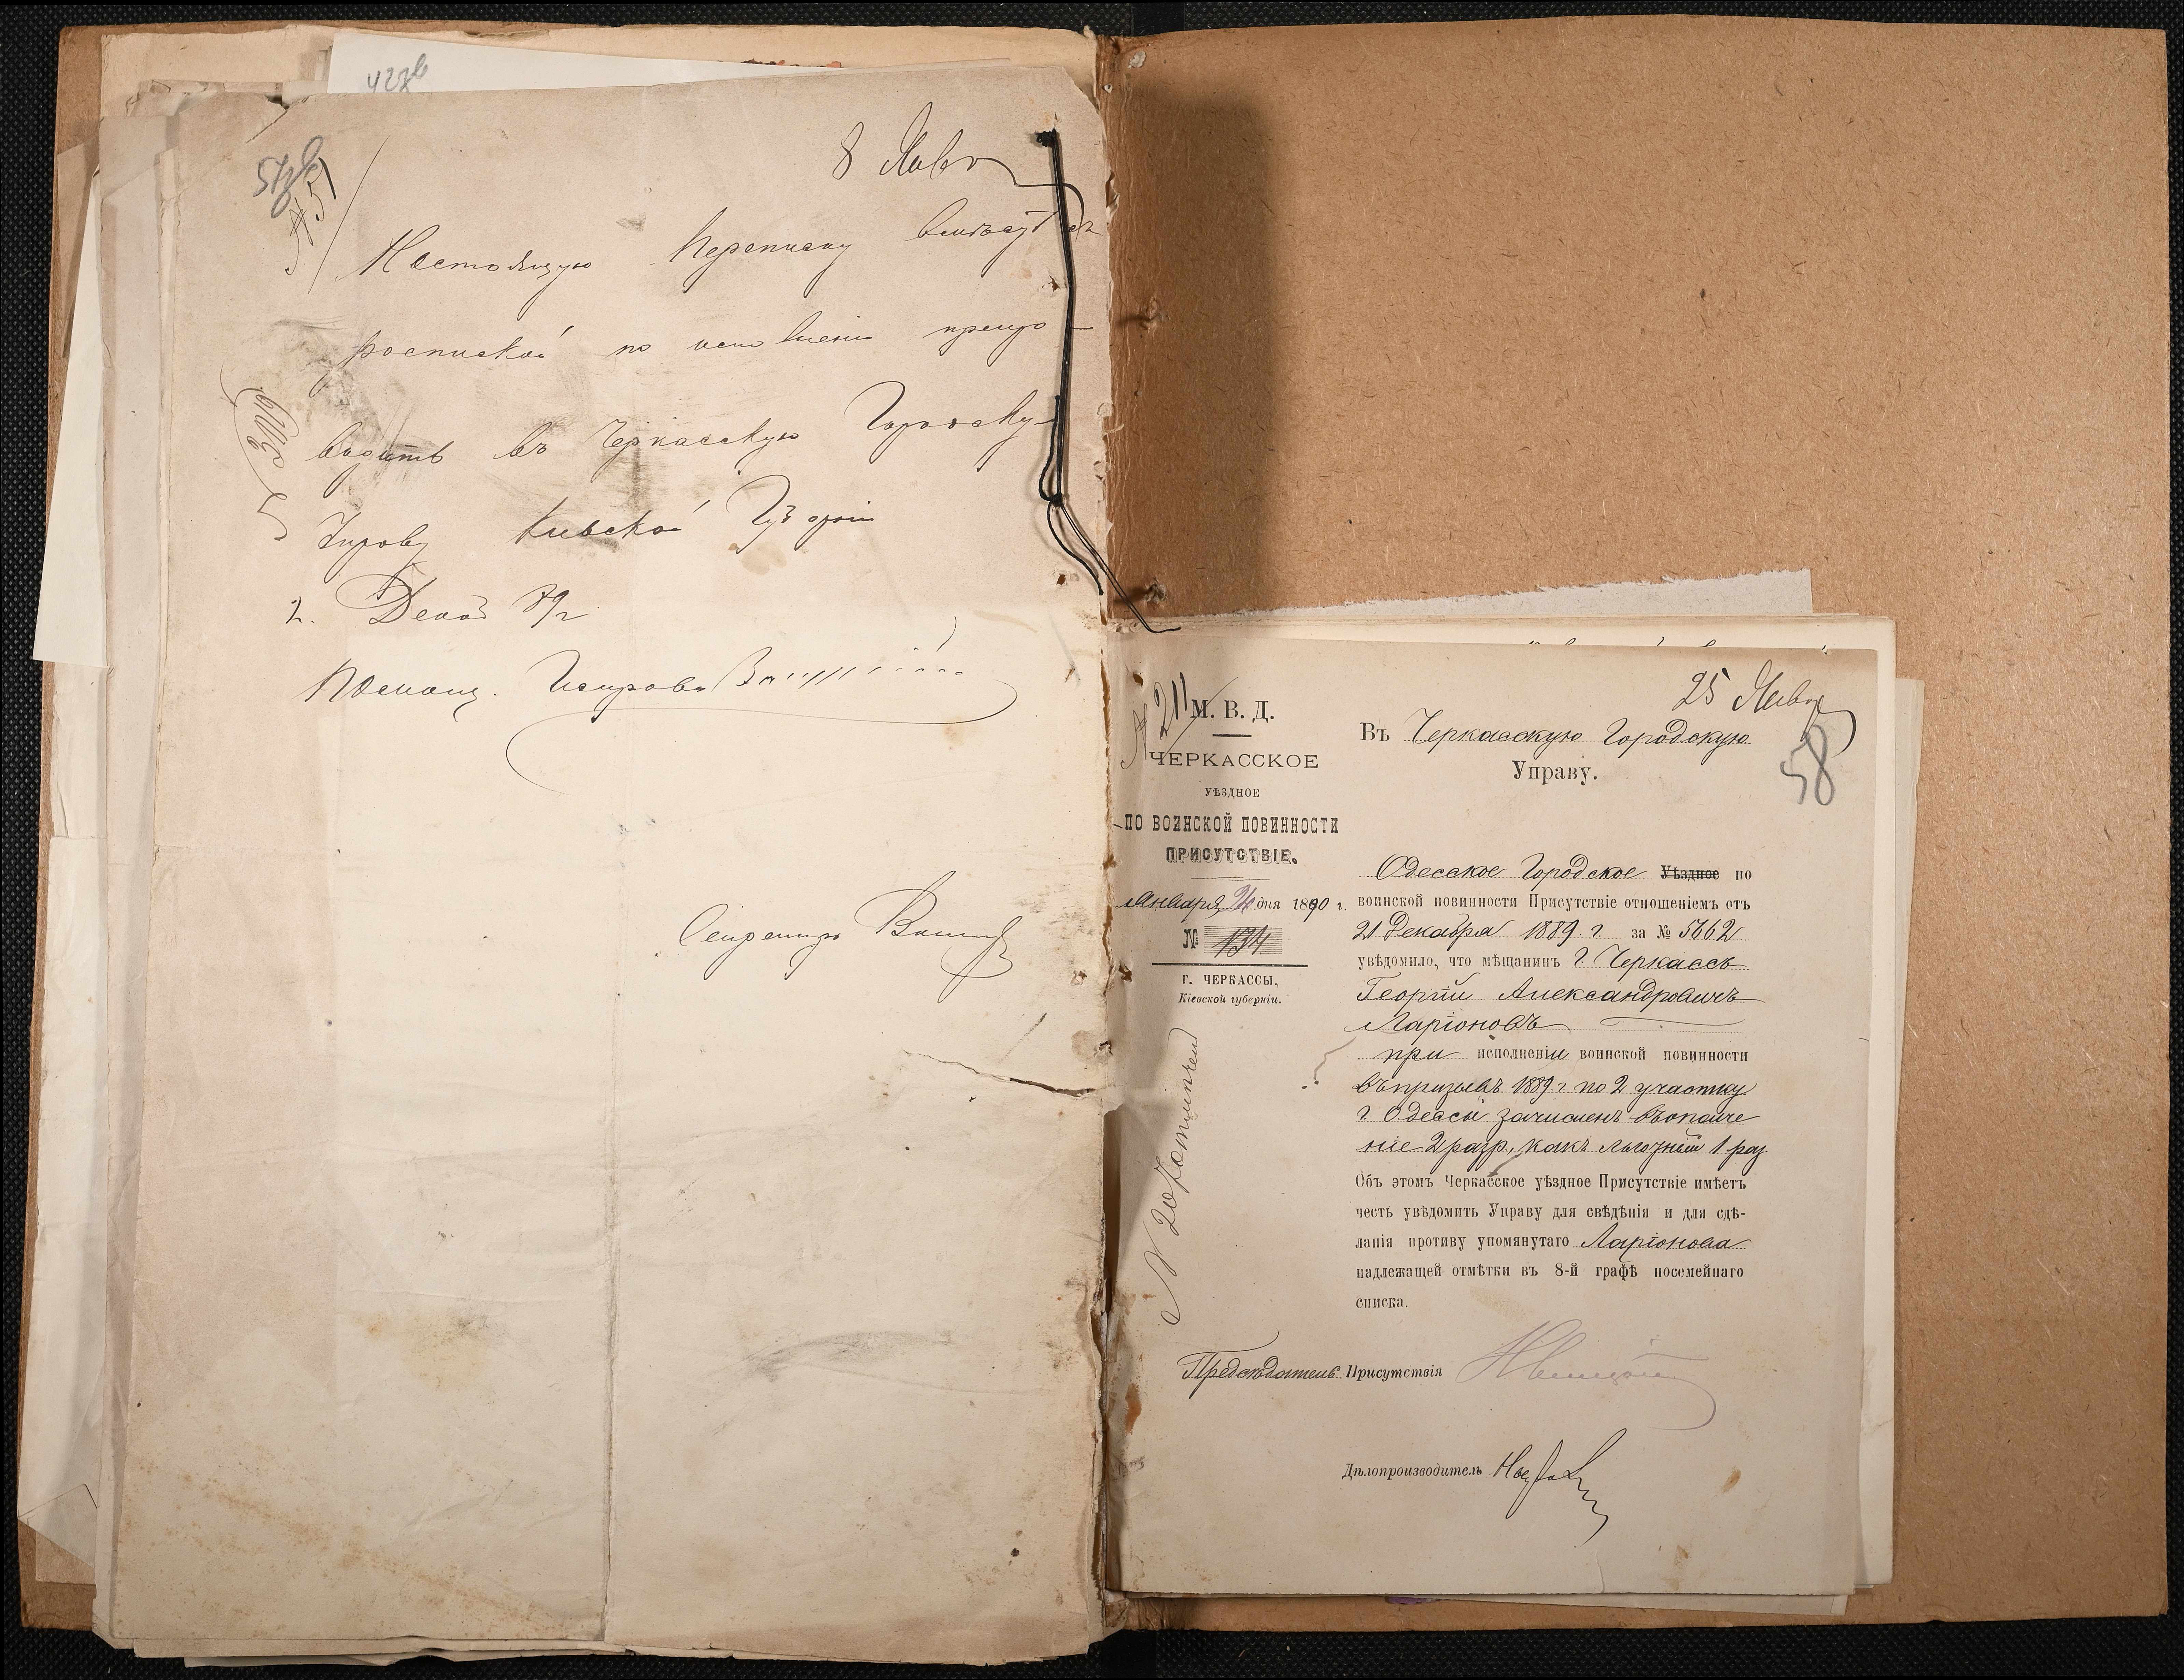 57 об
№ 51
8 Янв
Настоящую переписку вмѣстѣ съ
роспиской по исполненіи препро-
водить въ Черкасскую Городскую
Управу Кіевской Губерніи
2. Декаб 89 г
Помощ. Исправн
Секретарь
№ 211
М. В. Д.
ЧЕРКАССКОЕ
УѢЗДНОЕ
ПО ВОИНСКОЙ ПОВИННОСТИ
ПРИСУТСТВІЕ.
Января 24 дня 1890 г.
№ 134
Г. ЧЕРКАССЫ,
Кіевской губерніи.
25 Янва
58
Въ Черкасскую Городскую
Управу.
Одесское Городское Уѣздное по
воинской повинности Присутствіе отношеніемъ отъ
21 Декабря 1889 г. за № 5662
увѣдомило, что мѣщанинъ г. Черкассъ
Георгій Александровичъ
Ларіоновъ
при исполненіи воинской повинности
въ призывъ 1889 г по 2 участку
г. Одессы зачисленъ въ ополче
ніе 2 разр, какъ льготный 1 раз
Объ этомъ Черкасское уѣздное Присутствіе имѣетъ
честь увѣдомить Управу для свѣдѣнія и для сдѣ-
ланія противу упомянутаго Ларіонова
надлежащей отмѣтки въ 8-й графѣ посемейнаго
списка.
Предсѣдатель Присутствія
Дѣлопроизводитель